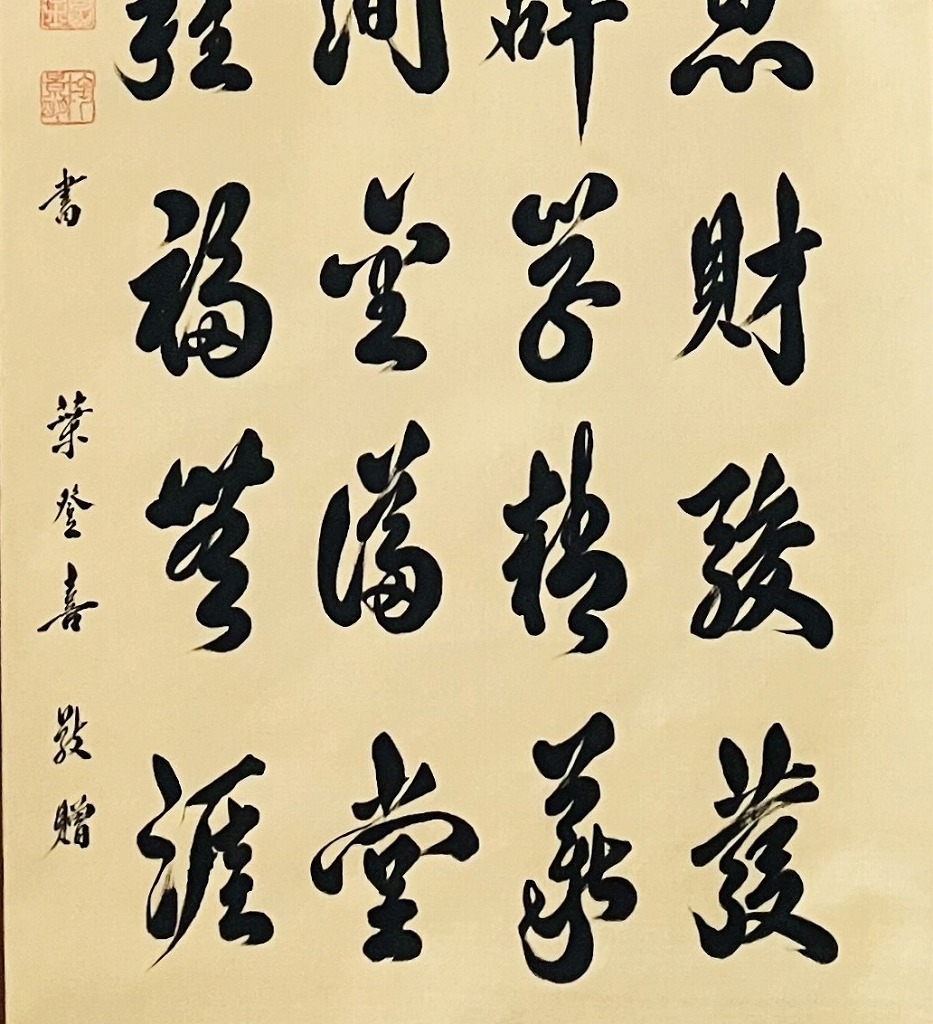 財駿發
學精義
金滿堂
福無涯
書 葉登喜敬贈